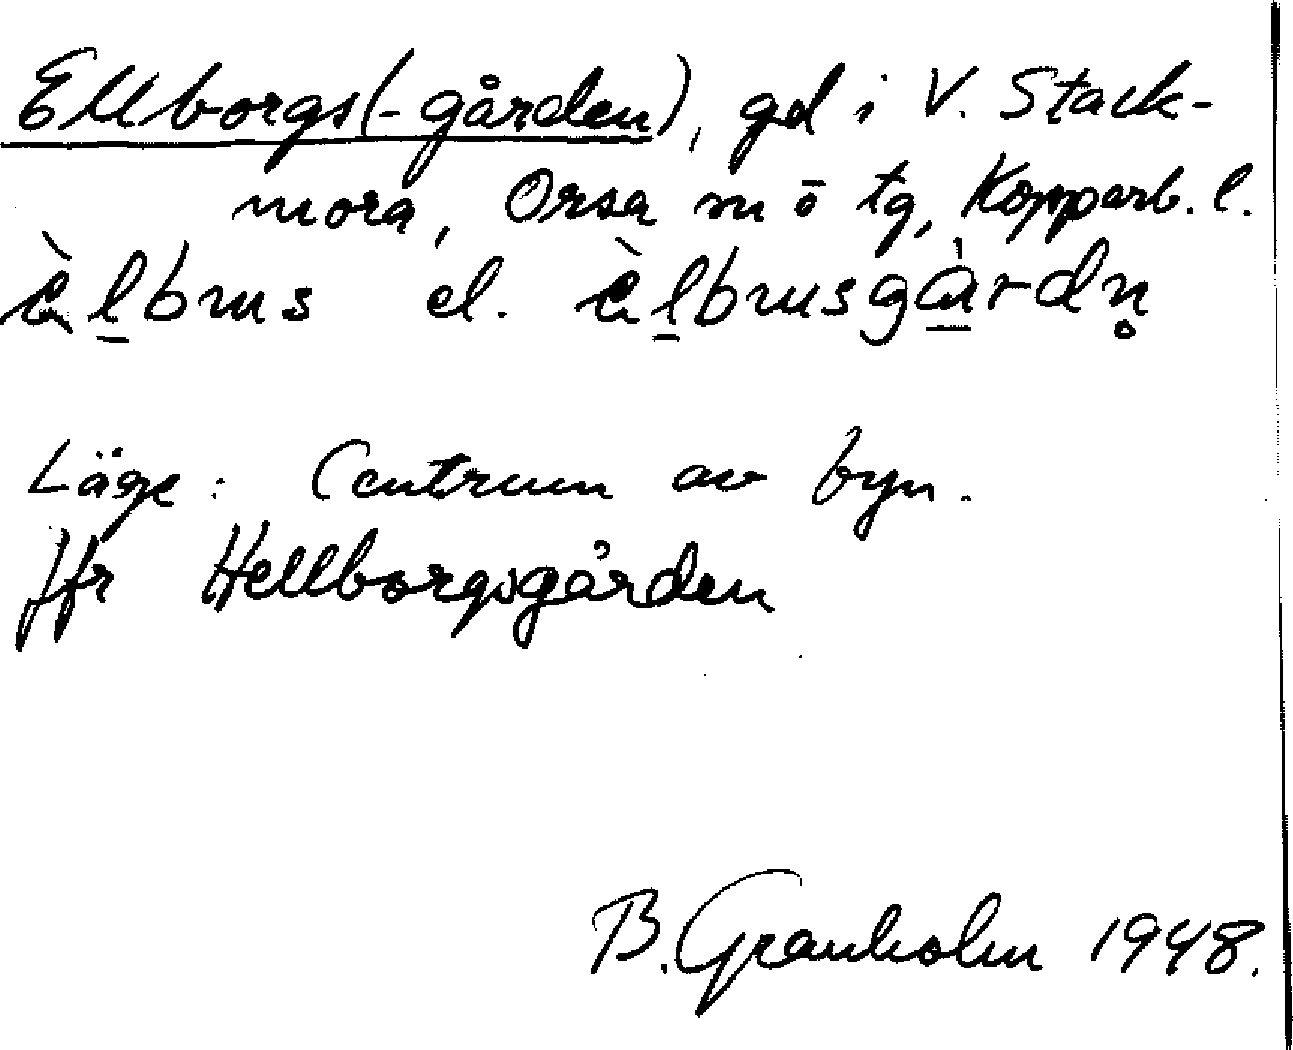 Ellborgs(-gården), gd i V. Stack-
mora, Orsa sn ö tg, Kopparb. l.
è̱l̲brus el. è̱l̲brusgà̲rdn̥
Läge: Centrum av byn.
Jfr Hellborgsgården
B. Granholm 1948.